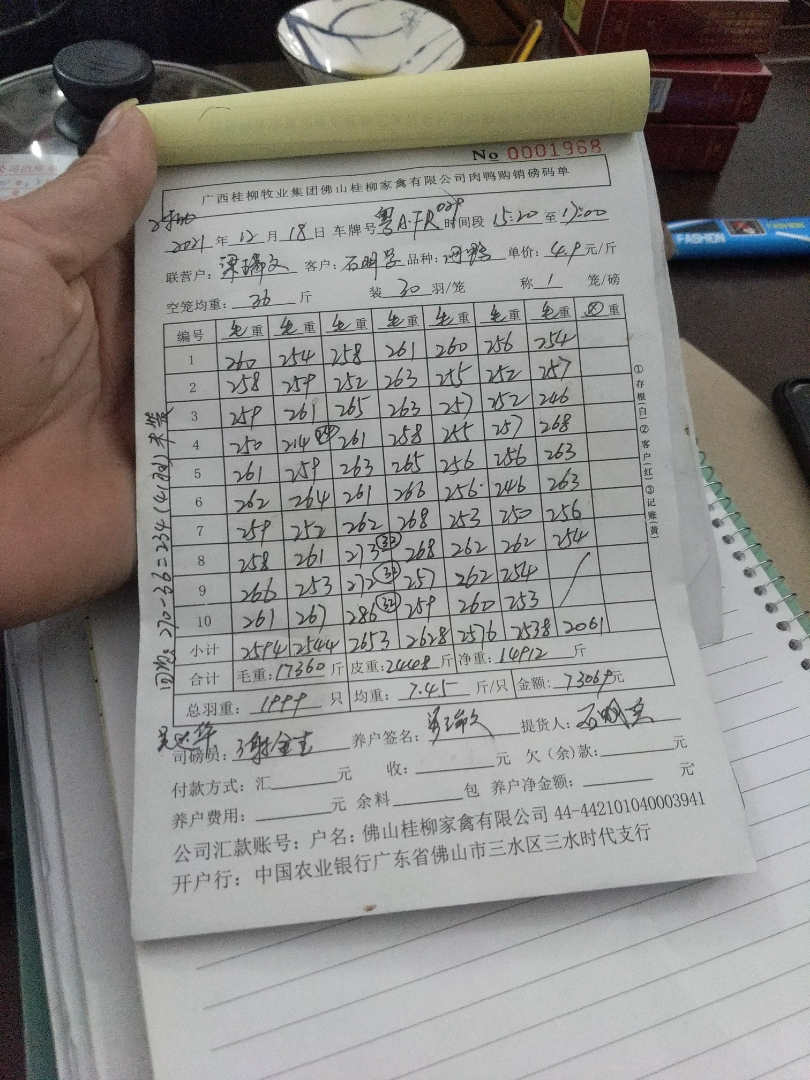 No 0001968
广西桂柳牧业集团佛山桂柳家禽有限公司肉鸭购销磅码单
2021 年 12 月 18 日 车牌号 粤A·FR029 时间段 15:20 至 17:00
联营户: 梁瑞文 客户: 石明 品种: 单价: 4.9 元/斤
空笼均重: 36 斤 装 30 羽/笼 称 1 笼/磅
编号 毛重 毛重 毛重 毛重 毛重 毛重 毛重 重
1 260 254 258 261 260 256 254
2 258 259 252 263 255 252 257
3 259 261 265 263 257 252 246
4 250 214 261 258 255 257 268
5 261 259 263 265 256 256 263
6 262 264 261 266 256 246 263
7 259 252 262 268 253 250 256
8 258 261 273 268 262 262 254
9 266 253 272 257 262 254
10 261 267 286 259 260 253
小计 2594 2544 2653 2628 2576 2538 2061
合计 毛重: 17360 斤 皮重: 2448 斤 净重: 14912 斤
总羽重: 1999 只 均重: 7.45 斤/只 金额: 73069 元
司磅员: 养户签名: 提货人:
付款方式: 汇 元 收: 元 欠(余)款: 元
养户费用: 元 余料 包 养户净金额: 元
公司汇款账号: 户名: 佛山桂柳家禽有限公司 44-442101040003941
开户行: 中国农业银行广东省佛山市三水区三水时代支行
①存根(白)②客户(红)③记账(黄)
270-36=234
FASHION
FASHION